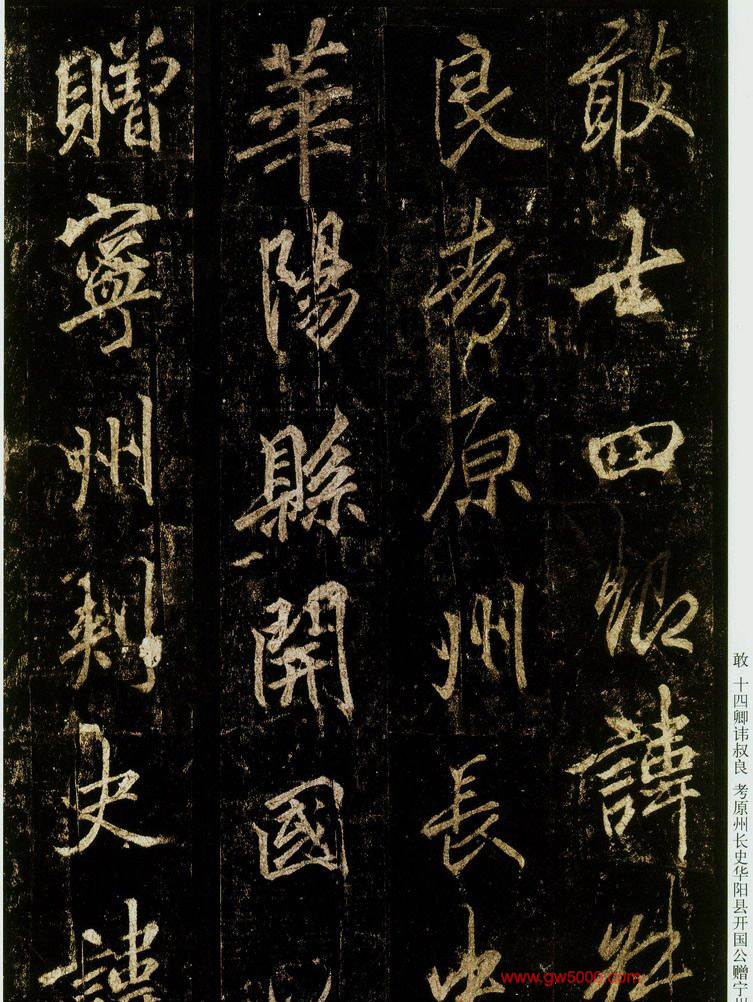 敢士四卿諱叔
良考原州長史
華陽縣開國公
贈寧州刺史諱
敢 十四卿讳叔良 考原州长史华阳县开国公赠宁
www.gw5000.com